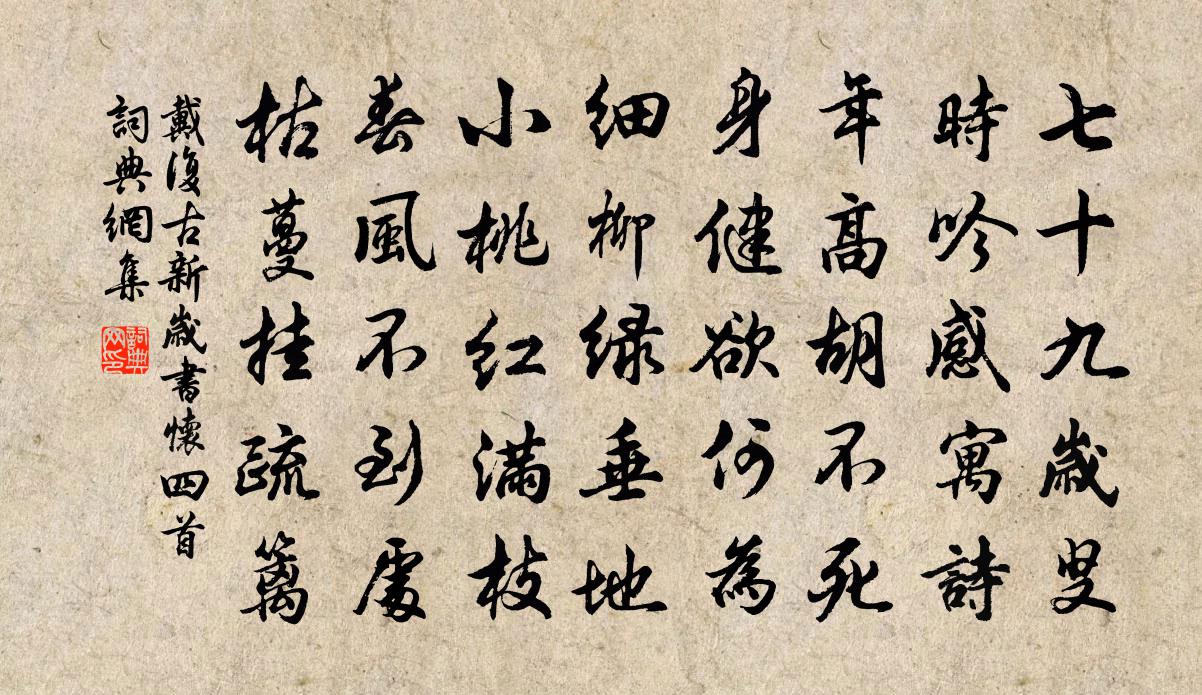 七十九歲叟
時吟感寓詩
年高胡不死
身健欲何為
細柳绿垂地
小桃红滿枝
春風不到處
枯蔓挂疏篱
戴復古新歲書懷四首
詞典網集
詞典网印